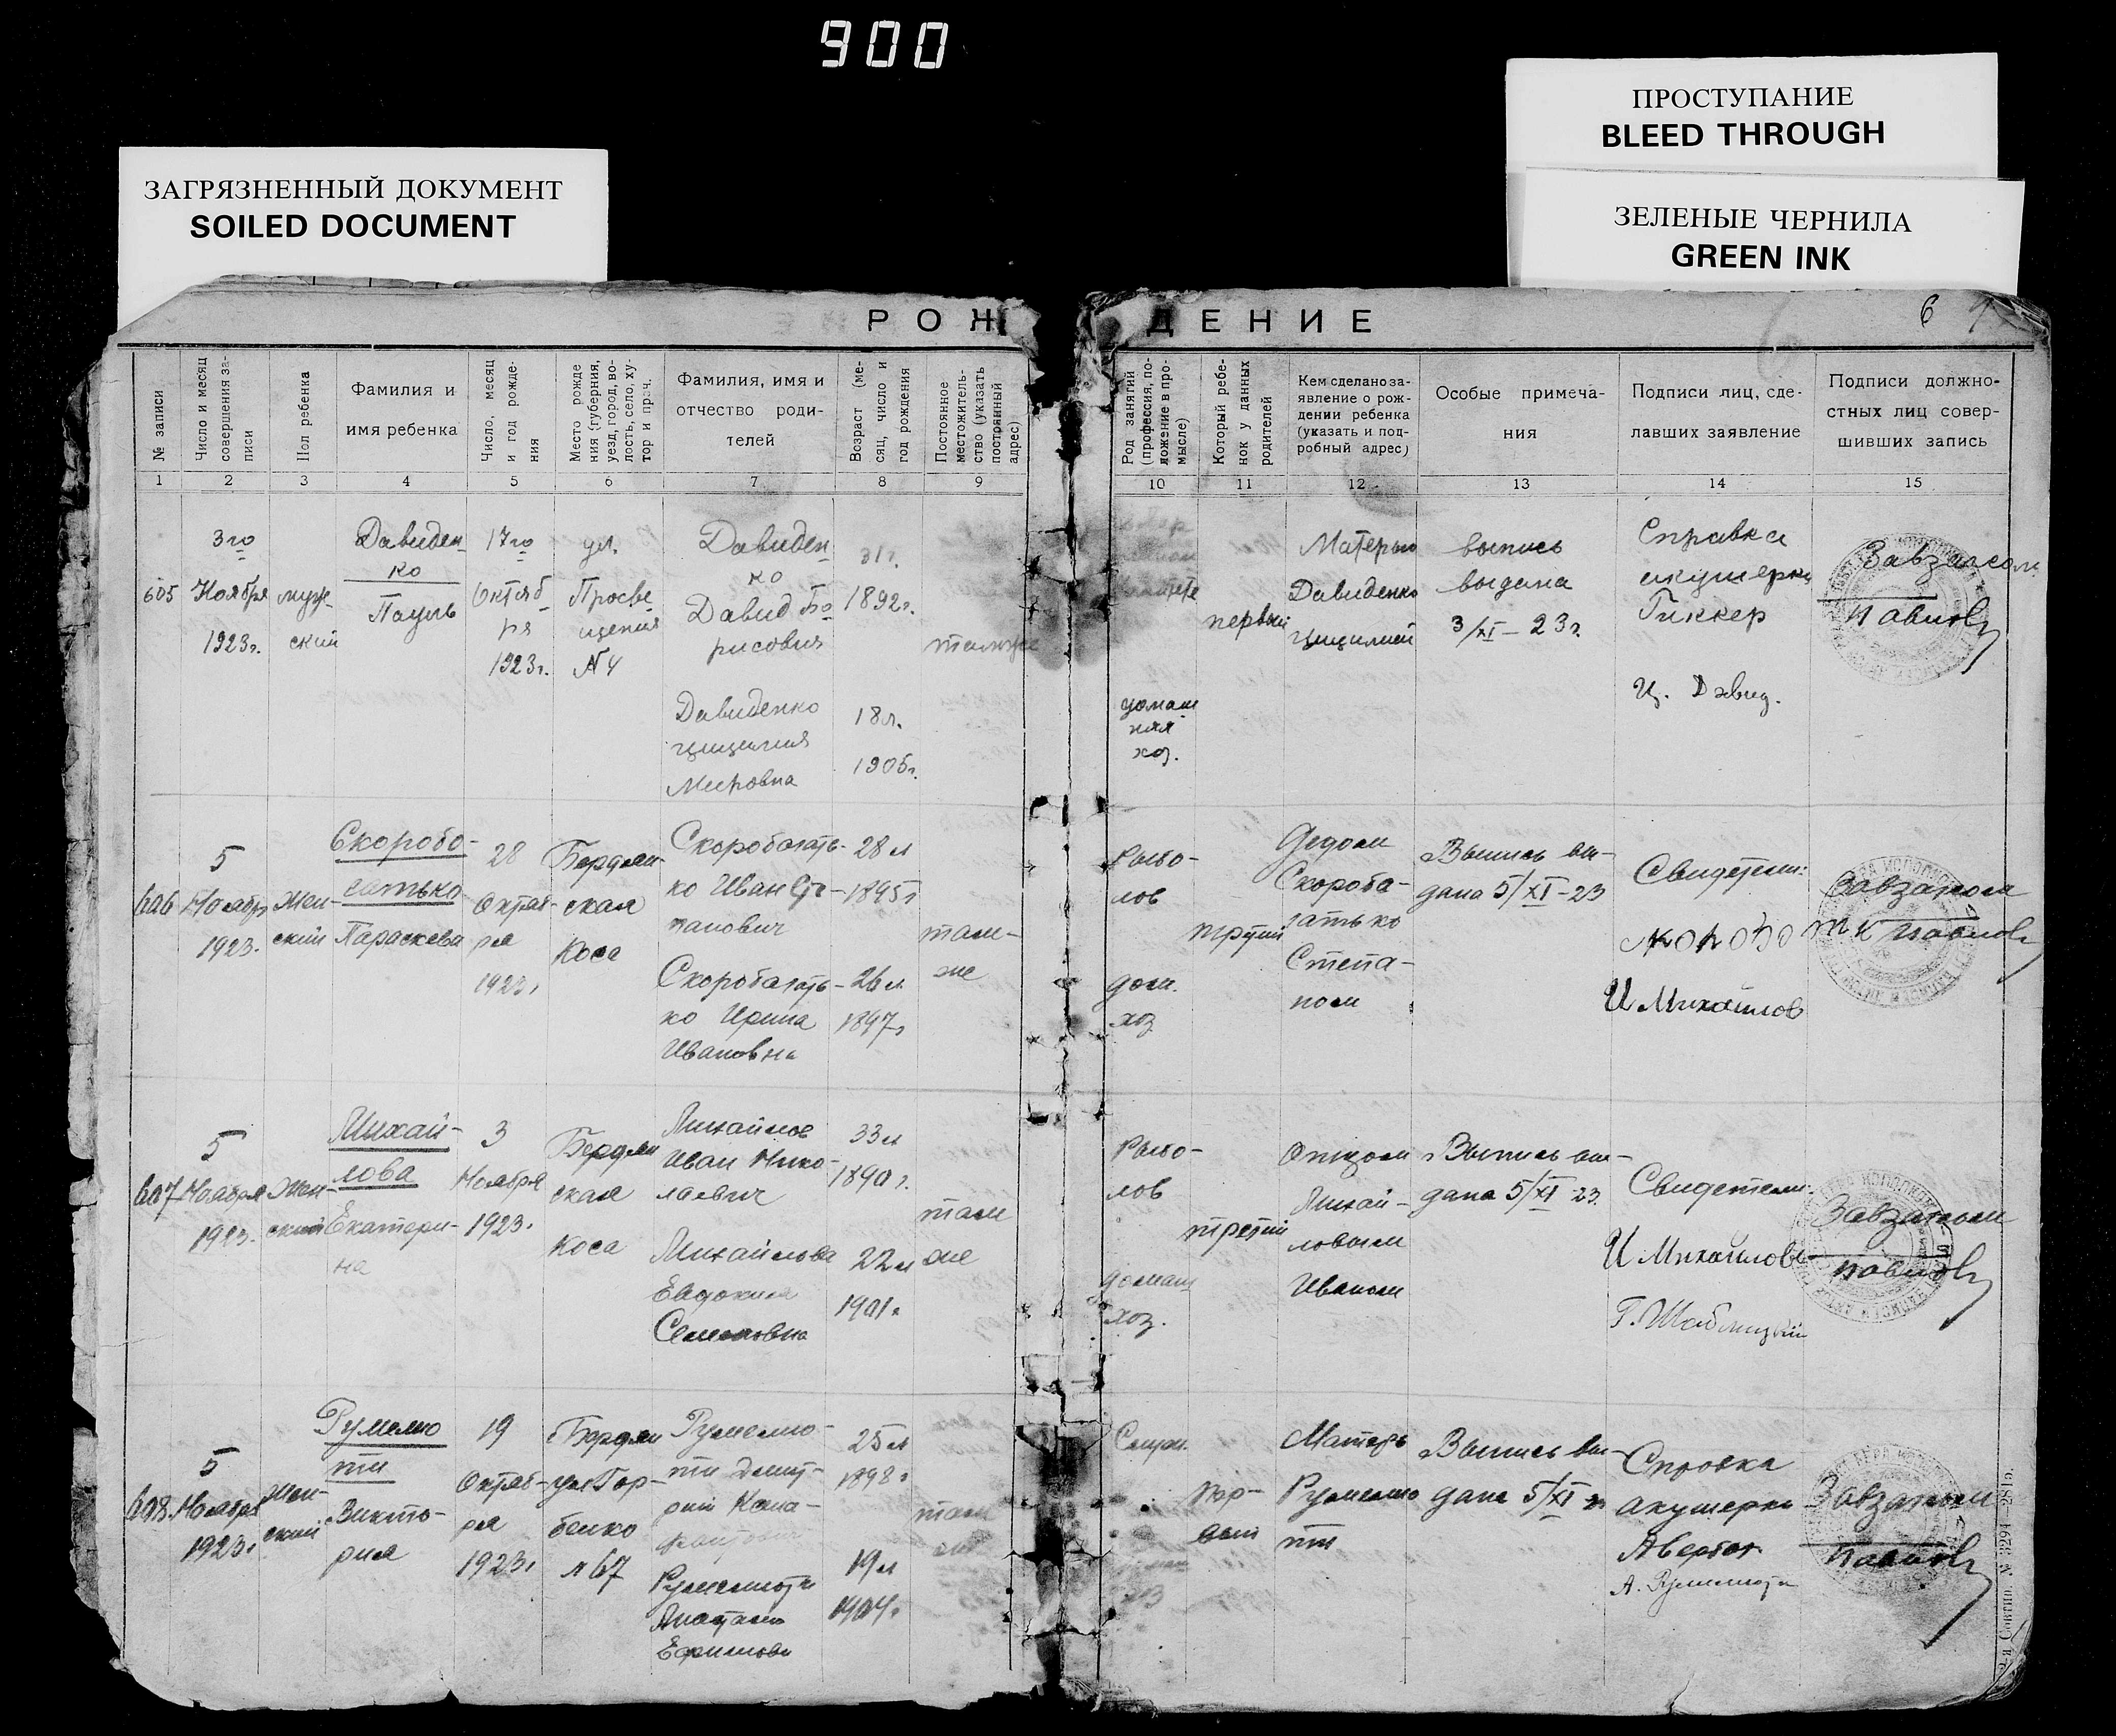 900
ПРОСТУПАНИЕ
BLEED THROUGH
ЗАГРЯЗНЕННЫЙ ДОКУМЕНТ
SOILED DOCUMENT
ЗЕЛЕНЫЕ ЧЕРНИЛА
GREEN INK
РОЖДЕНИЕ
6
№ записи
Число и месяц
совершения за-
писи
Пол ребенка
Фамилия и
имя ребенка
Число, месяц
и год рожде-
ния
Место рожде
ния (губерния,
уезд, город, во-
лость, село, ху-
тор и проч.
Фамилия, имя и
отчество роди-
телей
Возраст (ме-
сяц, число и
год рождения
Постоянное
местожитель-
ство (указать
постоянный
адрес)
Род занятий
(профессия, по-
ложение в про-
мысле)
Который ребе-
нок у данных
родителей
Кем сделано за-
явление о рож-
дении ребенка
(указать и под-
робный адрес)
Особые примеча-
ния
Подписи лиц, сде-
лавших заявление
Подписи должно-
стных лиц совер-
шивших запись
1 2 3 4 5 6 7 8 9 10 11 12 13 14 15
605
3го
Ноября
1923г.
муж-
ский
Давиден
ко
Пауль
17го
Октяб
ря
1923г.
ул.
Просве
щения
N4
Давиден
ко
Давид Бо
рисович
31г.
1892г.
также
Давиденко
Цицилия
Мееровна
18л.
1905г.
домаш
няя
хоз.
первый
Матерью
Давиденко
Цицилией
выпись
выдана
3/XI-23г.
Справка
акушерки
Гиккер
Ц. Давид.
Завзагсом
Павлов
606
5
Ноября
1923.
Жен-
ский
Скоробо-
гатько
Параскева
28
Октяб-
ря
1923г
Бердян-
ская
Коса
Скоробогать-
ко Иван Сте-
панович
28л
1895г
Скоробогать-
ко Ирина
Ивановна
26л
1897г
там-
же
Рыбо-
лов
дом.
хоз
третий
Дедом
Скоробо-
гатько
Степа-
ном
Выпись вы-
дана 5/XI-23
Свидетели:
И Михайлов
Завзагсом
Павлов
607
5
Ноября
1923.
Жен-
ский
Михай-
лова
Екатери-
на
3
Ноября
1923.
Бердян
ская
Коса
Михайлов
Иван Нико-
лаевич
33л
1890г.
Михайлова
Евдокия
Семеновна
22л
1901г
там
же
Рыбо-
лов
домаш
хоз.
третий
Отцом
Михай-
ловым
Иваном
Выпись вы-
дана 5/XI-23
Свидетели:
И Михайлов
Г. Шаблицкий
Завзагсом
Павлов
608.
5
Ноября
1923г
жен-
ский
Румелио
ти
Викто-
рия
19
Октяб-
ря
1923г
Бердян
ул Гор-
бенко
N 67
Румелио-
ти Дмит-
рий
25л
1898г
Румелиоти
Анастасия
Ефимовна
19л
1904г
там
пер-
вый
Матерь
Румелио
ти
Выпись вы-
дана 5/XI 23
Справка
акушерки
А. Румелиоти
Завзагсом
Павлов